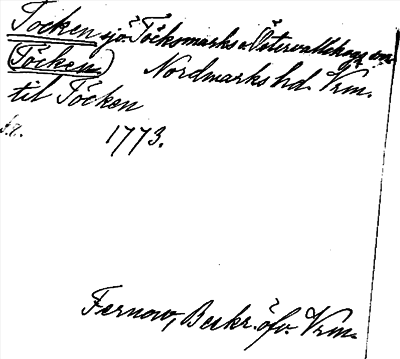 Tocken sjö Töcksmarks o. Östervallskog sn
(Töcken) Nordmarks hd. Vrm.
til Töcken
1773.
Fernow, Beskr. öfv. Vrm.